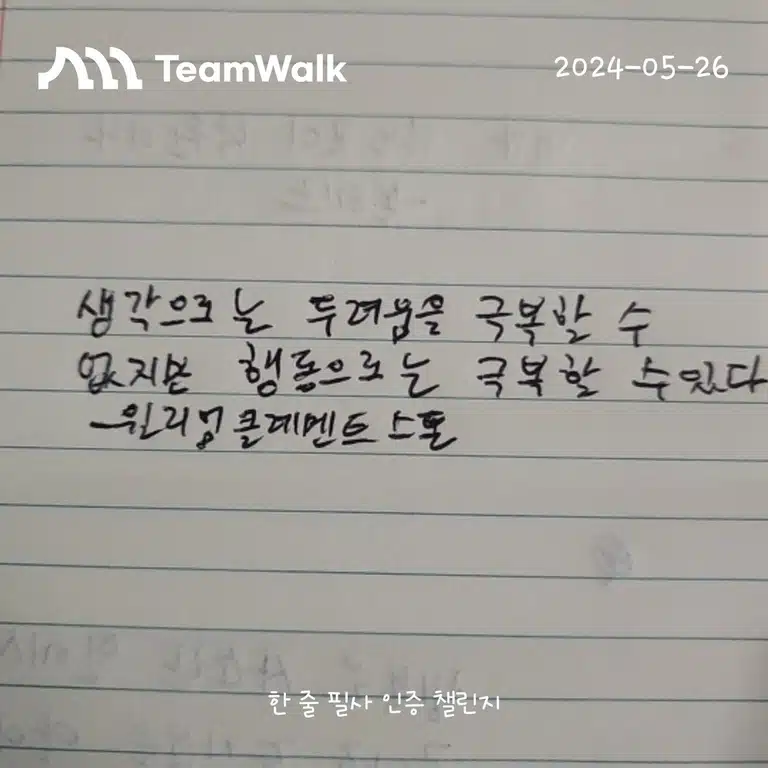 TeamWalk
2024-05-26
생각으로는 두려움을 극복할 수
없지만 행동으로는 극복할 수있다
-윌리엄 클레멘트 스톤
한 줄 필사 인증 챌린지